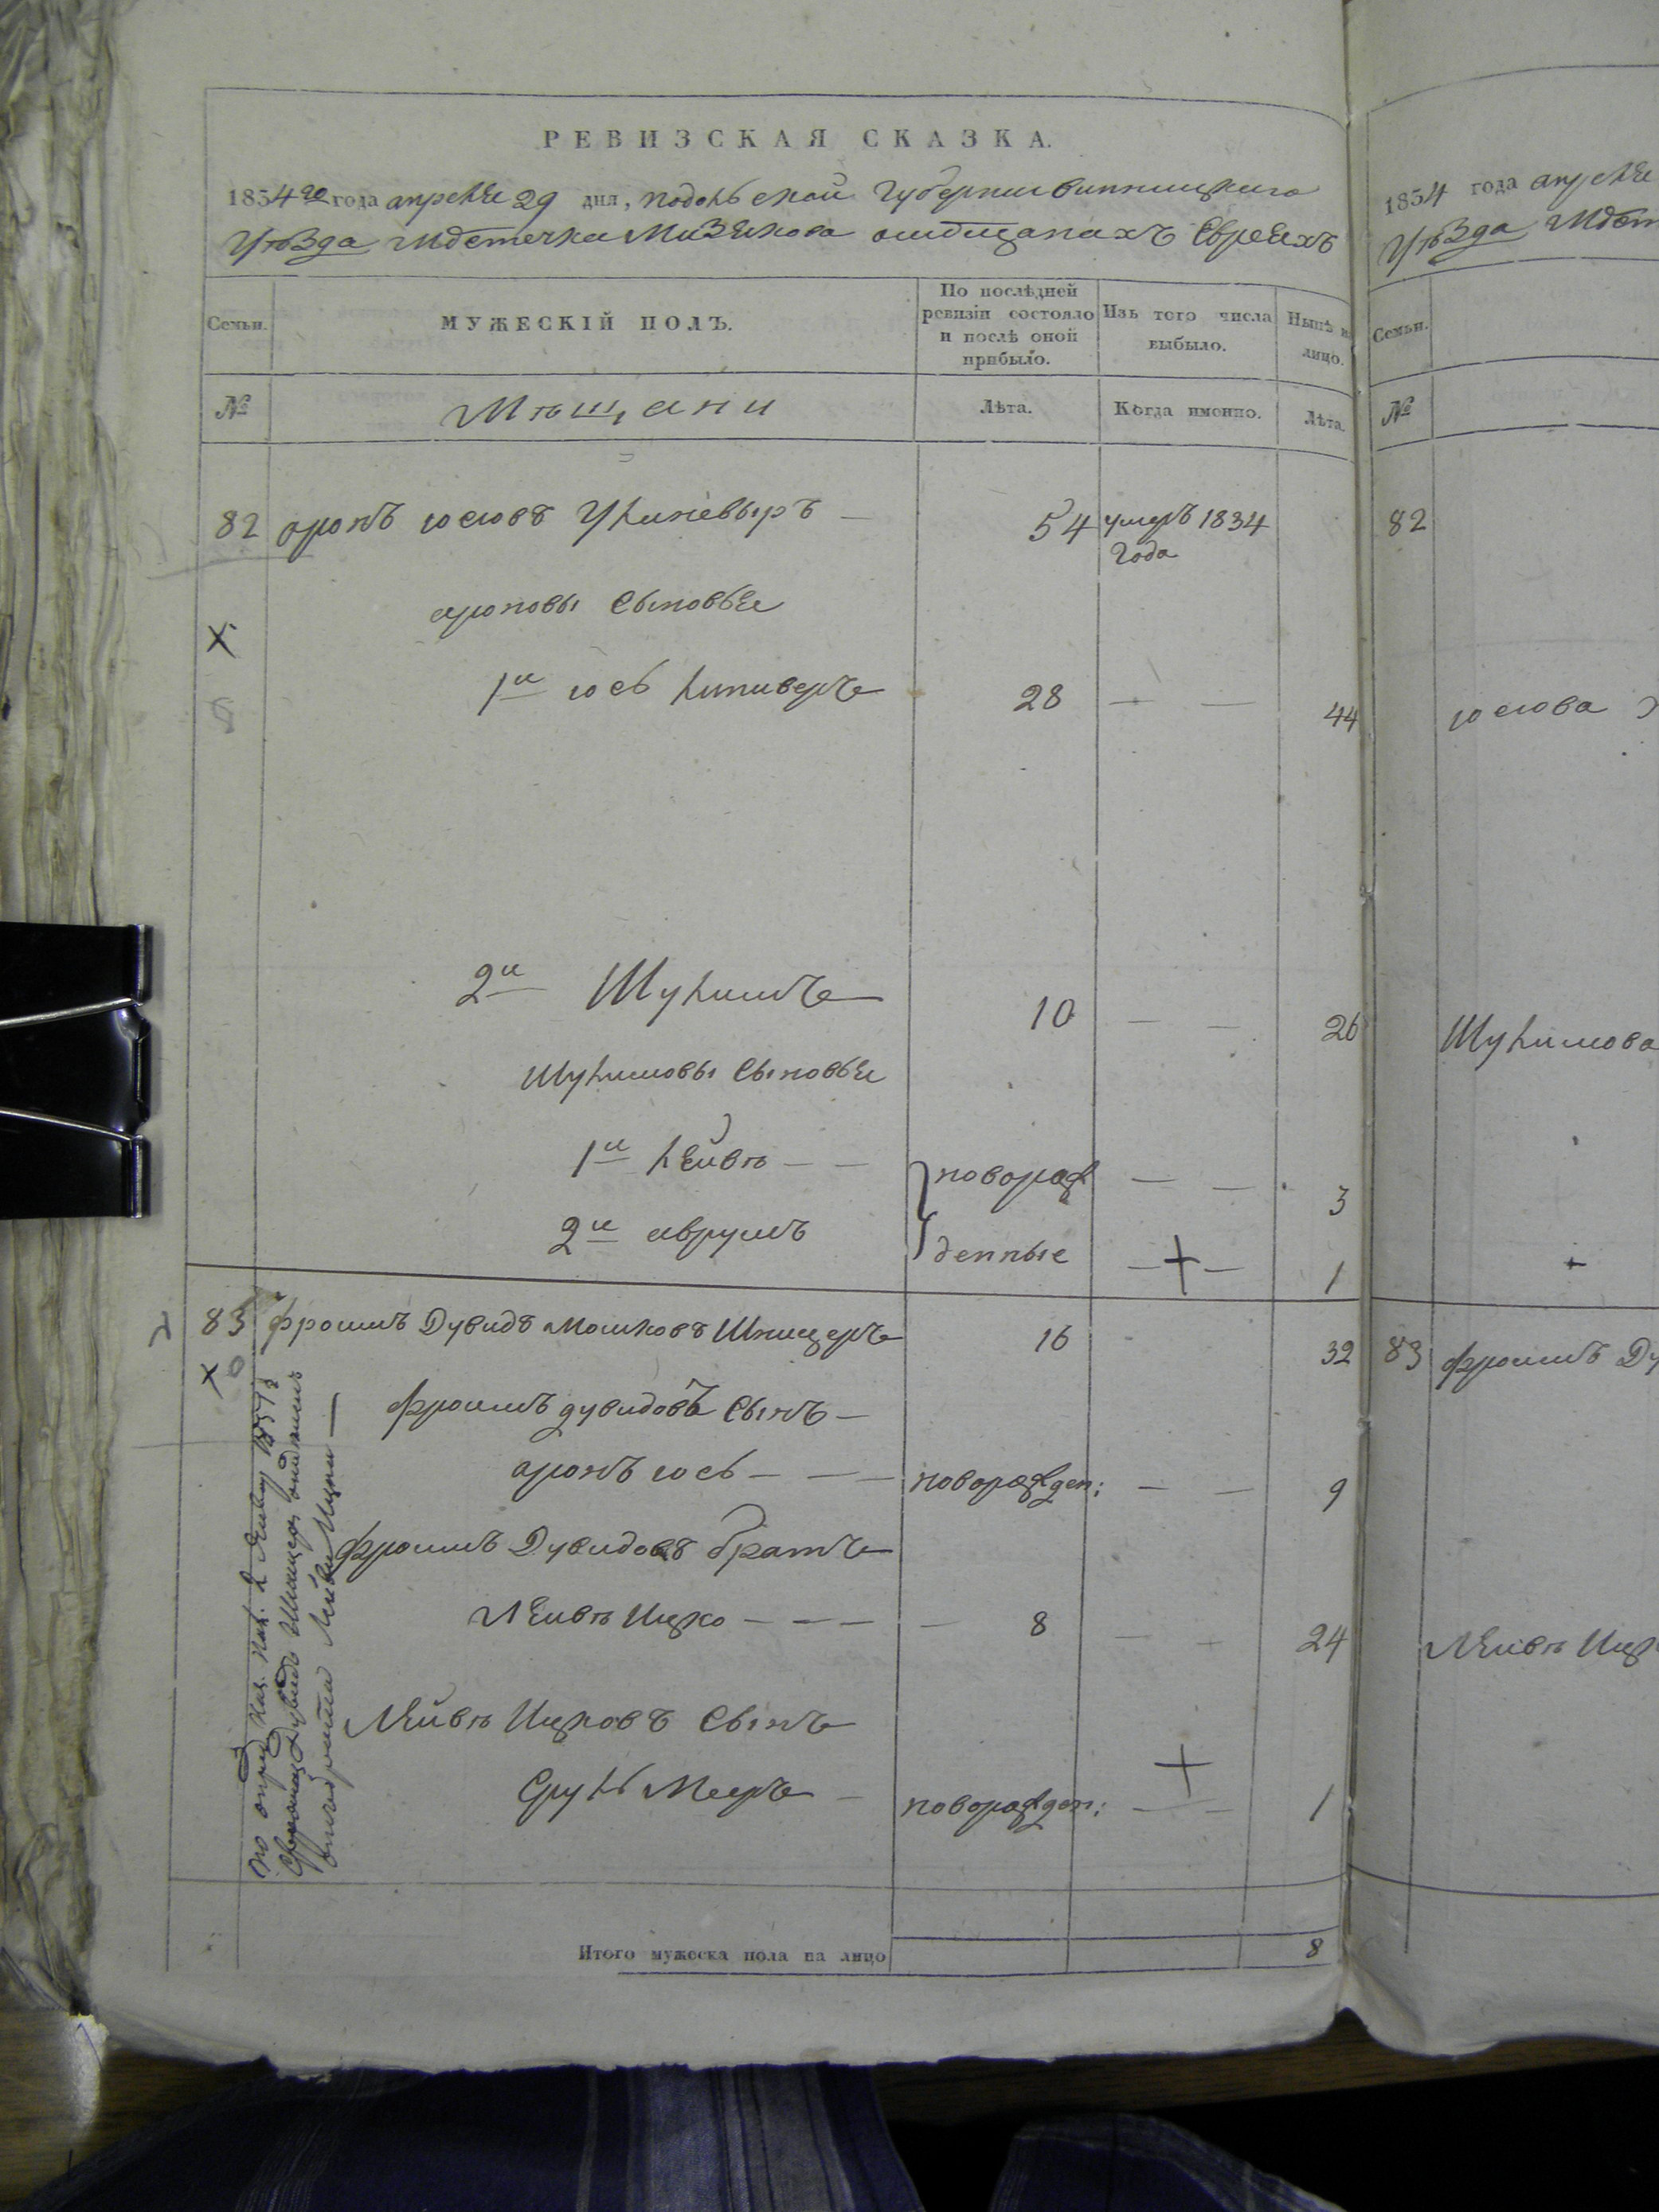 РЕВИЗСКАЯ СКАЗКА.
1854го года апреля 29 дня, Подольской Губернии Винницкого
Уѣзда Мѣстечка Мизякова омѣщанахъ Евреяхъ
Семьи.
МУЖЕСКІЙ ПОЛЪ.
По послѣдней ревизіи состояло и послѣ оной прибыло.
Изъ того числа выбыло.
Нынѣ на лицо.
№
Мѣщани
Лѣта.
Когда именно.
Лѣта.
82 аронъ Iосiовъ 54 умеръ 1834
года
ароновы сыновья
1й Iось 28 — — 44
2й Шулимъ 10 — — 26
Шулимовы сыновья
1й Лейвъ — — новорож — — 3
2й аврумъ денные — + — 1
83 Фроимъ Дувидъ Мошковъ Шницеръ 16 32
Фроимъ дувидовъ сынъ —
аронъ Iось — — — новорожден: — — 9
Фроимъ Дувидовъ братъ
Лейвъ Ицко — — — — 8 — — 24
Лейвъ Ицковъ сынъ
Сруль Мееръ — новорожден: — — 1
Итого мужеска пола на лицо 8
1854 года апреля
Уѣзда Мѣст
Семьи.
№
82
Iосiова
Шулимова
83 Фроимъ Ду
Лейвъ Ицк